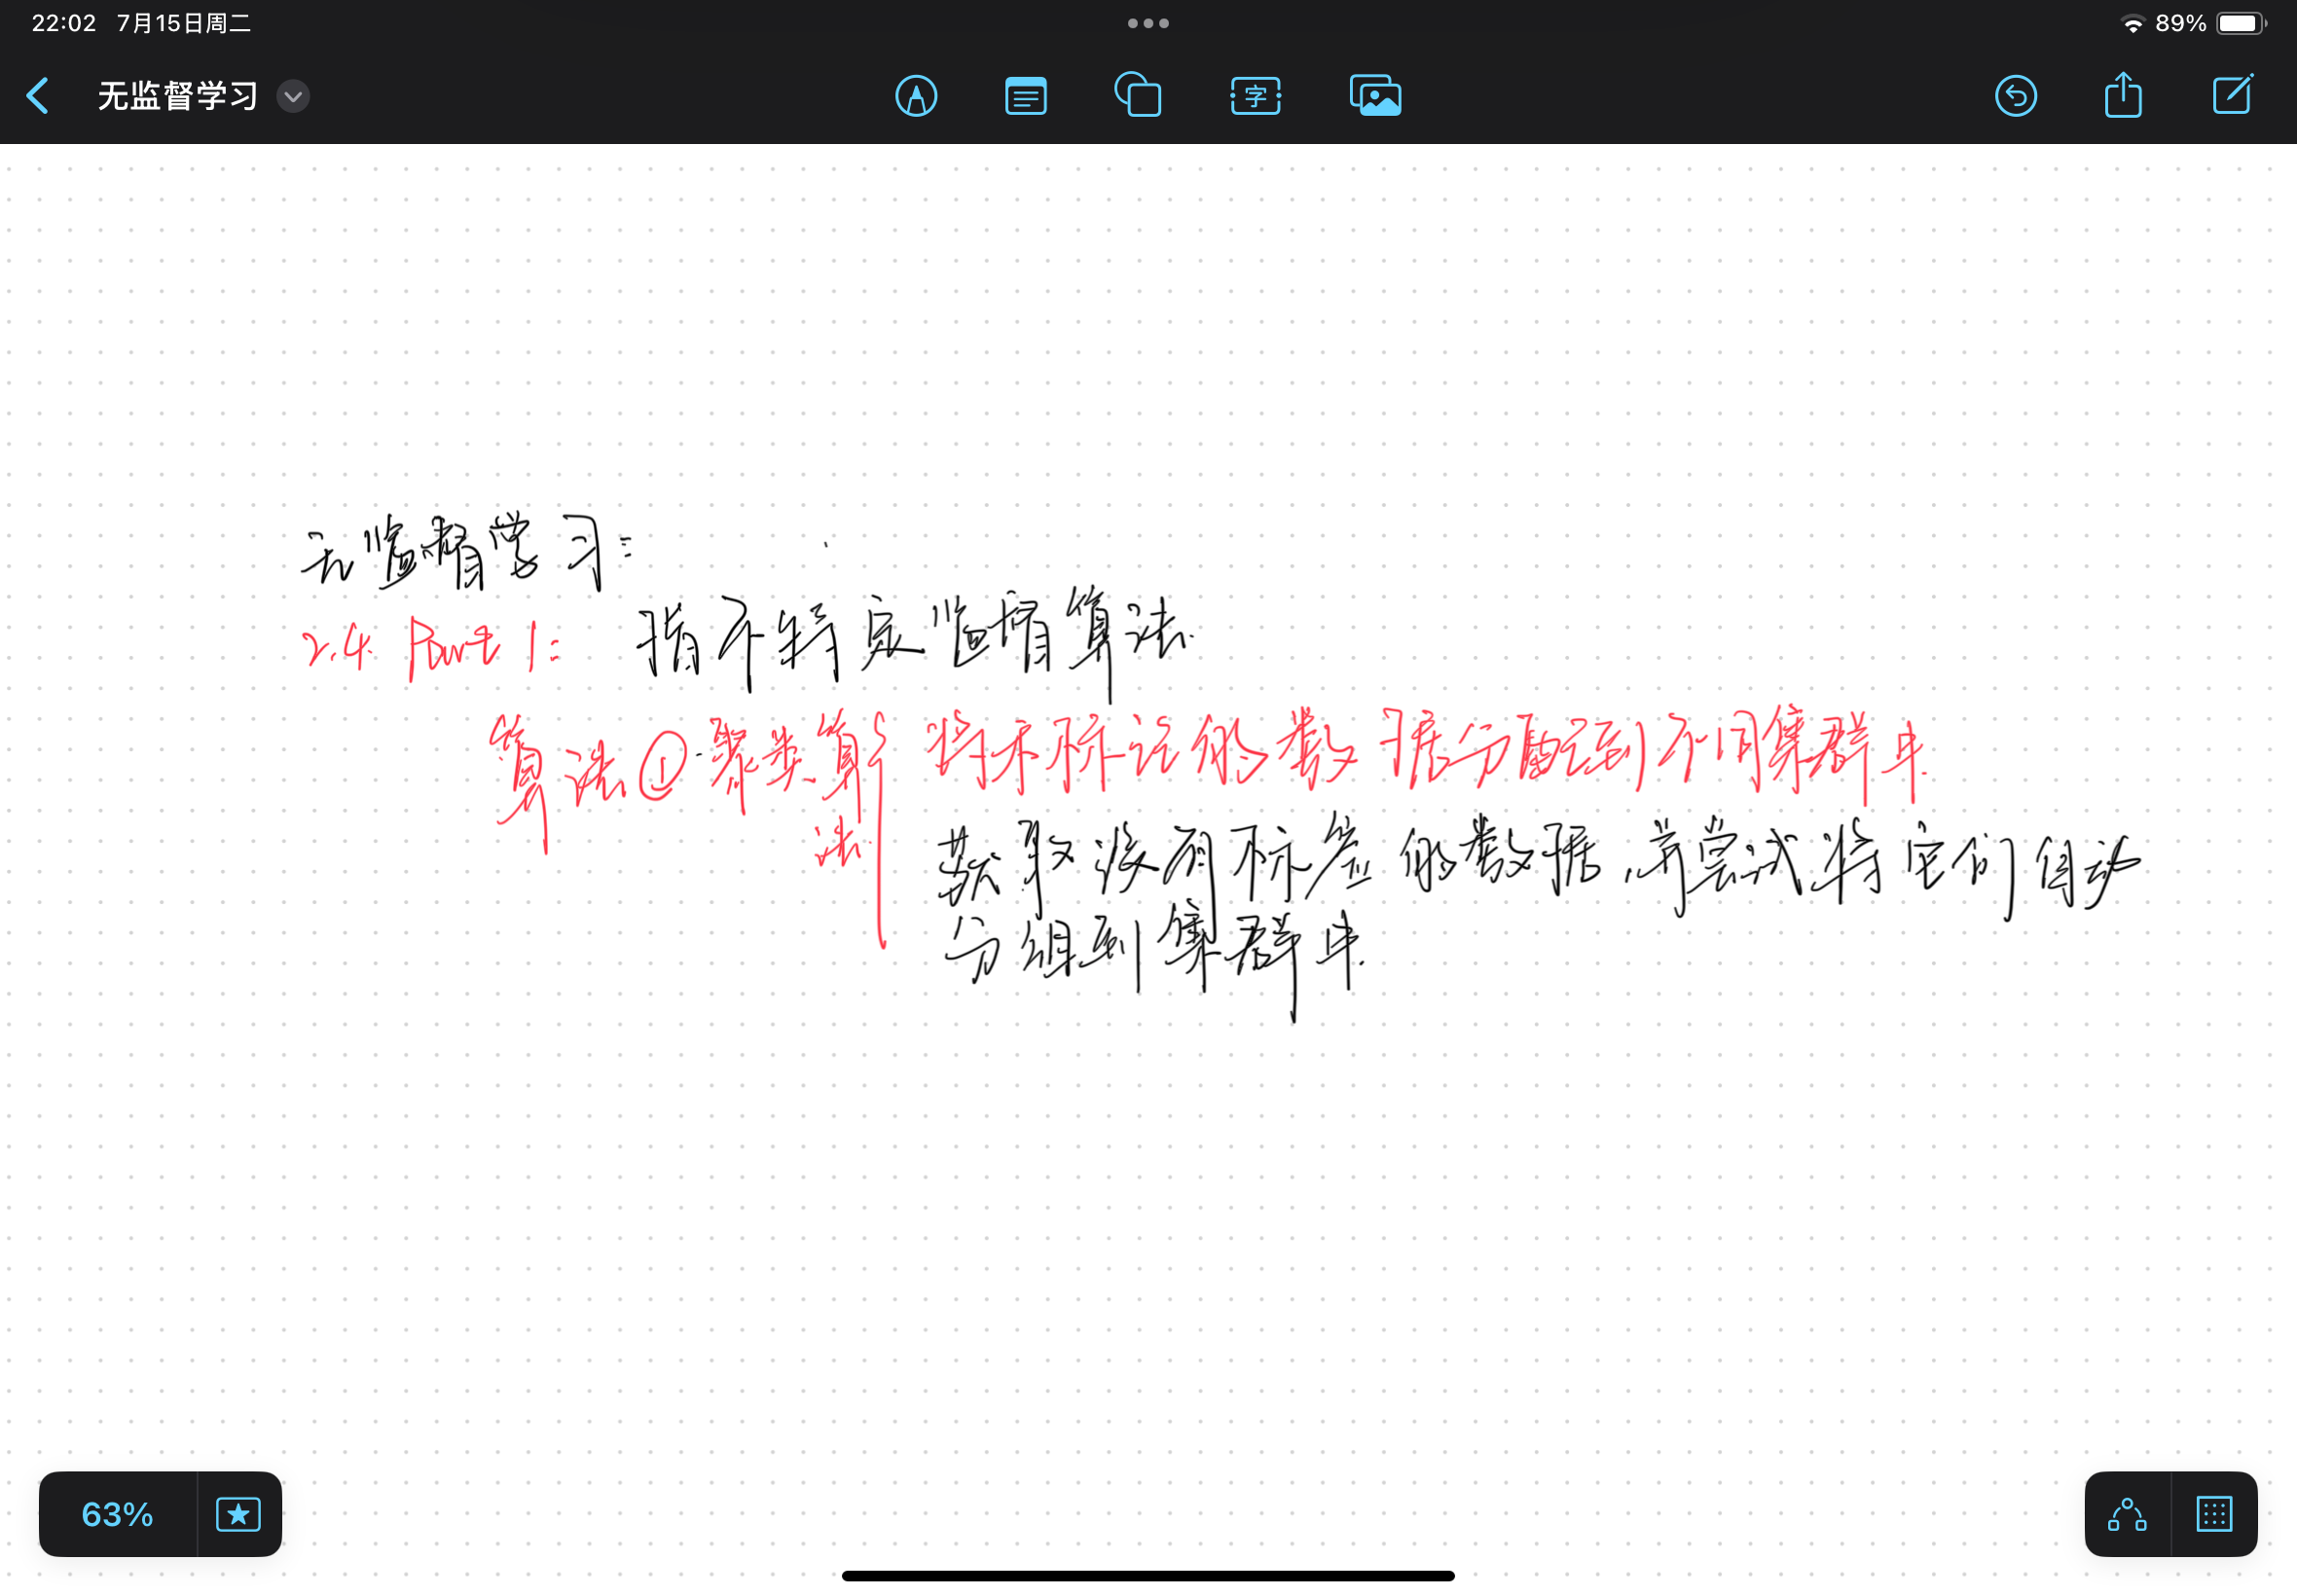 22:02 7月15日周二
89%
无监督学习
字
无监督学习:
2.4. Part 1: 指不特定监督算法.
算法① 聚类算法 将未标记的数据分配到不同集群中.
获取没有标签的数据,并尝试将它们自动
分组到集群中.
63%